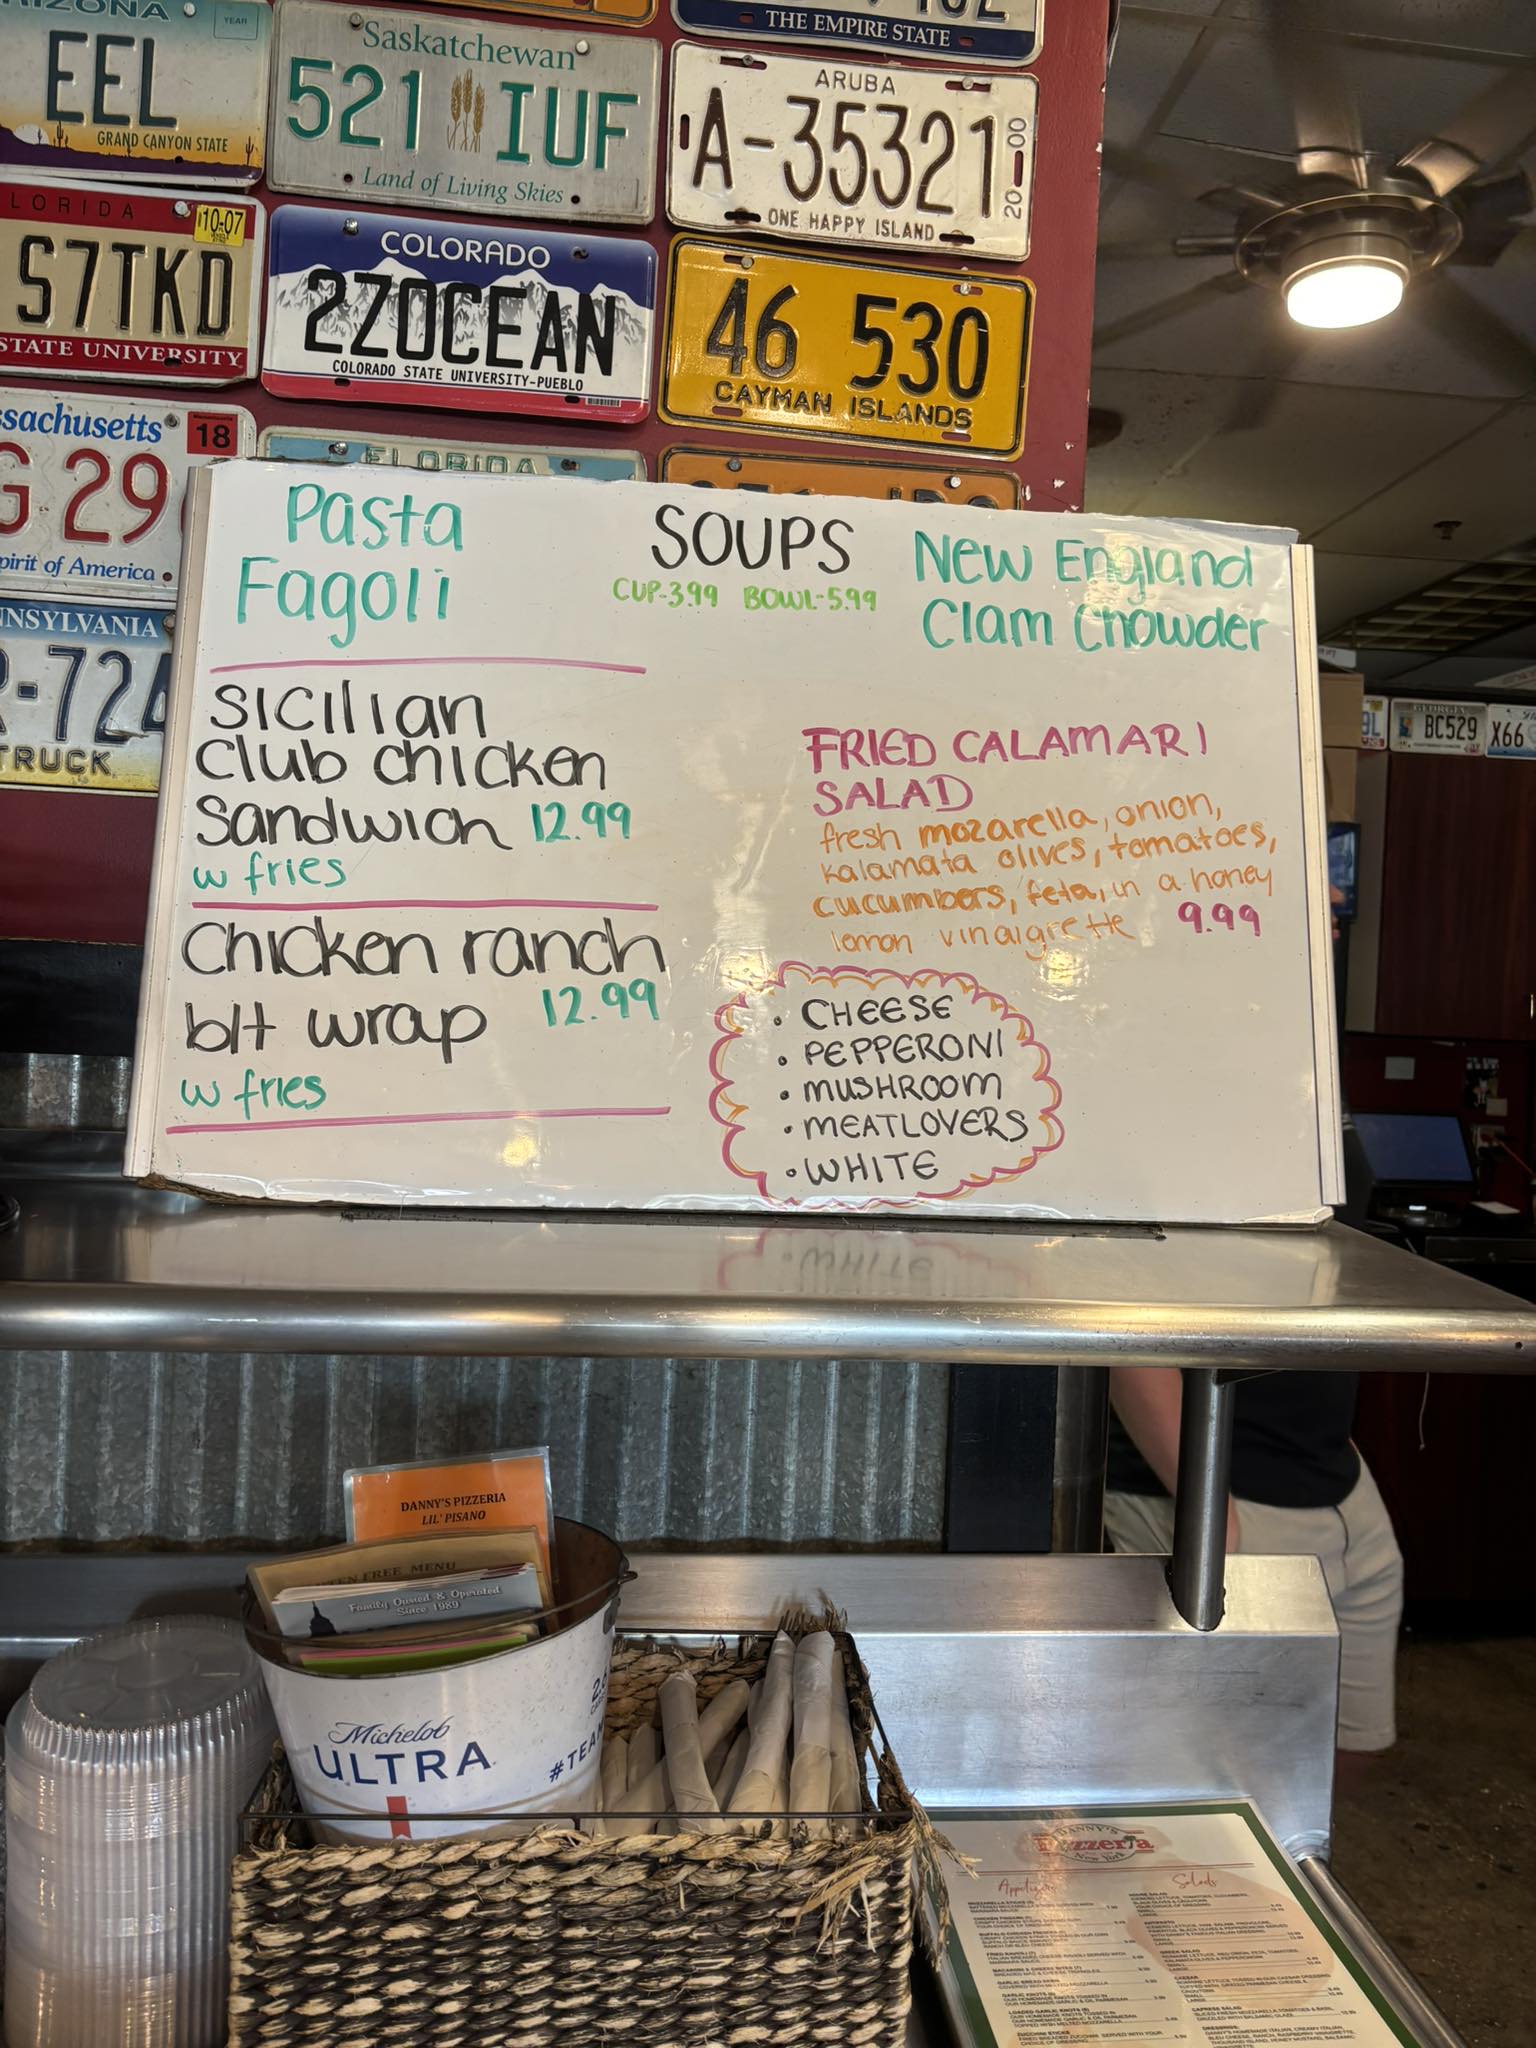 ARIZONA
YEAR
EEL
GRAND CANYON STATE
Saskatchewan
521 IUF
Land of Living Skies
THE EMPIRE STATE
ARUBA
A-35321
20 00
ONE HAPPY ISLAND
LORIDA
10-07
S7TKD
STATE UNIVERSITY
COLORADO
2ZOCEAN
COLORADO STATE UNIVERSITY-PUEBLO
46 530
CAYMAN ISLANDS
ssachusetts
18
G 29
pirit of America
FLORIDA
NNSYLVANIA
-724
TRUCK
GEORGIA
BC529
X66
Pasta
Fagoli
SOUPS
CUP-3.99 BOWL-5.99
New England
Clam Chowder
Sicilian
club chicken
sandwich 12.99
w fries
Chicken ranch
blt wrap 12.99
w fries
FRIED CALAMARI
SALAD
fresh mozarella, onion,
kalamata olives, tomatoes,
cucumbers, feta, in a honey
lemon vinaigrette 9.99
• CHEESE
• PEPPERONI
• MUSHROOM
• MEATLOVERS
• WHITE
DANNY'S PIZZERIA
LIL' PISANO
TEN FREE MENU
Family Owned & Operated
Since 1989
Michelob
ULTRA
#TEA
DANNY'S
Pizzeria
New York
Appetizers
Salads
HOUSE SALAD
MOZZARELLA STICKS
CHICKEN FINGERS
ANTIPASTO
GREEK SALAD
CAESAR
GARLIC KNOTS
CAPRESE SALAD
ZUCCHINI STICKS
DRESSINGS: